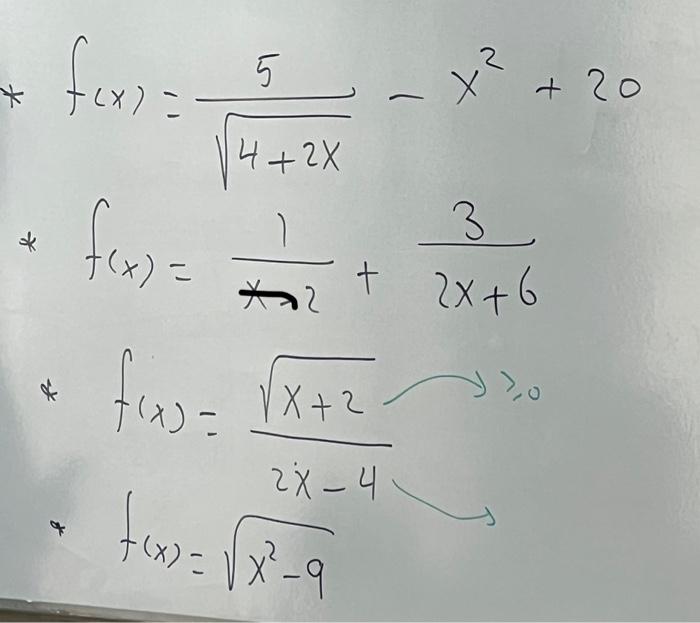 * f(x) = 5/√(4+2x) - x² + 20
* f(x) = 1/(x-2) + 3/(2x+6)
* f(x) = √(x+2)/(2x-4) ≥0
* f(x) = √(x²-9)